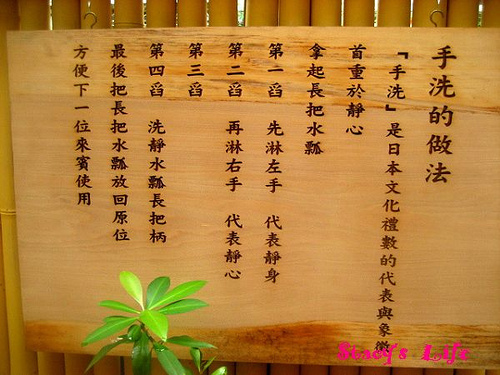 手洗的做法
「手洗」是日本文化禮數的代表與象徵
首重於靜心
拿起長把水瓢
第一舀 先淋左手 代表靜身
第二舀 再淋右手 代表靜心
第三舀
第四舀 洗靜水瓢長把柄
最後把長把水瓢放回原位
方便下一位來賓使用
Stacy's Life